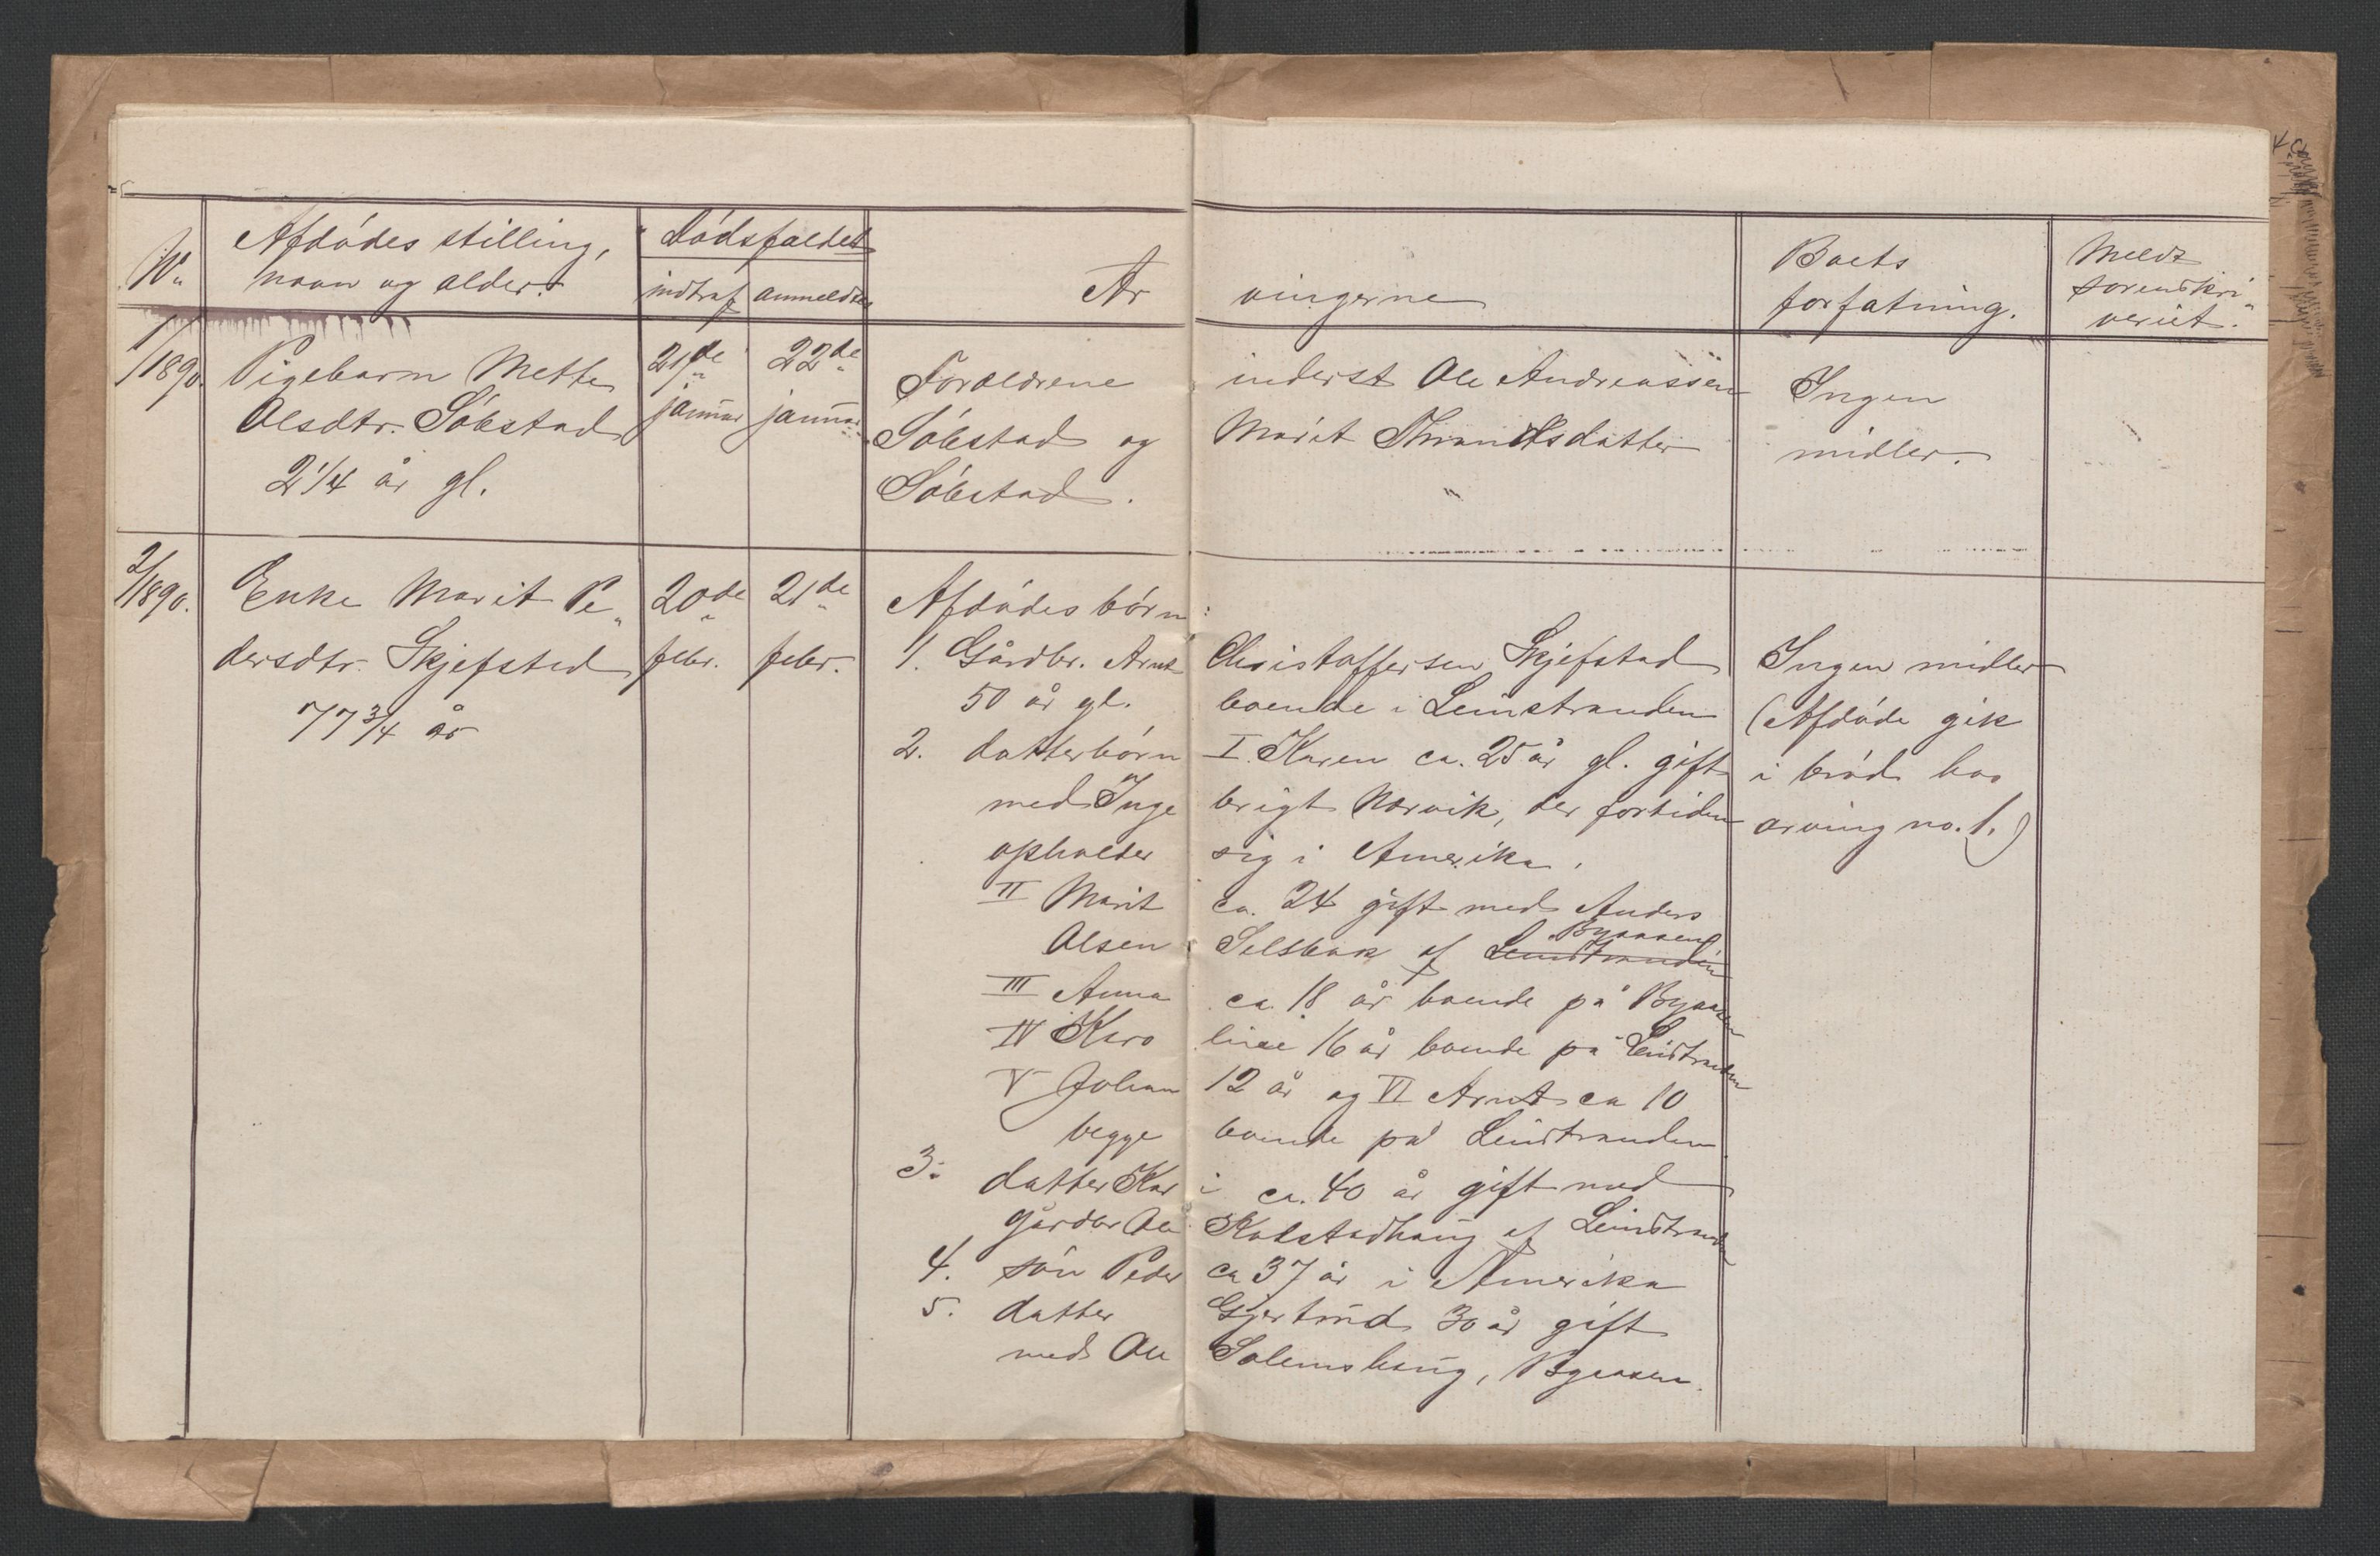 No. Afdødes stilling, navn og alder. Dødsfaldet indtraf anmeldtes Ar vingerne Boets forfatning. Meldt sorenskri„ veriet.
1/1890. Pigebarn Mette 21de 22de Forældrene inderst Ole Andreassen Ingen
Olsdtr. Søbstad januar januar Søbstad og Marit Throndsdatter midler.
2 1/4 år gl. Søbstad.
2/1890. Enke Marit Pe„ 20de 21de Afdødes børn:
dersdtr. Skjefsted febr. febr. 1. Gårdbr. Arnt Christoffersen Skjefstad Ingen midler
77 3/4 år 50 år gl. boende i Leinstranden (Afdøde gik
2. datterbørn I. Karen ca. 25 år gl. gift i brød hos
med Inge brigt Nervik, der fortiden arving no. 1.)
opholder sig i Amerika.
II Marit ca. 24 gift med Anders
Olsen Selsbak af Leinstranden Byaasen
III Anna ca. 18 år boende på Byaasen
IV Karo line 16 år boende på Leinstranden
V Johan 12 år og VI Arnt ca 10
begge boende på Leinstranden
3. datter Kar i ca. 40 år gift med
gårdbr Ole Kolstadhaug af Leinstranden
4. søn Peder ca 37 år i Amerika
5. datter Gjertrud 30 år gift
med Ole Solemshaug, Byaasen.